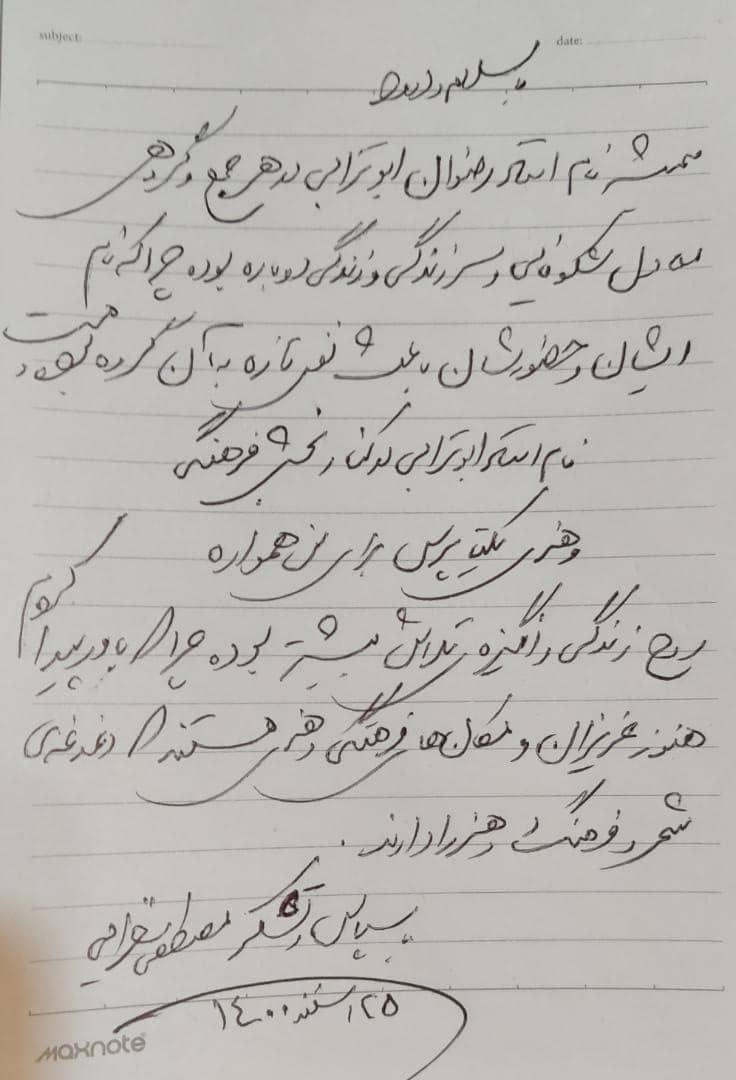 subject:
date:
با سلام و درود
همیشه نام استاد رضوان ابوترابی در هر جمع و گروهی
دل شکوفایی و سرزندگی و زندگی دوباره بوده چرا که نام
ایشان و حضورشان باعث نفس تازه به آن گروه بوده است
نام استاد ابوترابی در کنار بخش فرهنگی
و هنری پرس برای من همواره
روح زندگی و انگیزه تلاش بیشتر بوده چرا که باور پیدا کردم
هنوز عزیزان و مکان‌های فرهنگی و هنری هستند که دغدغه‌ی
شعر و فرهنگ و هنر را دارند.
با سپاس و تشکر مصطفی
۲۵ اسفند ۱۴۰۰
maxnote